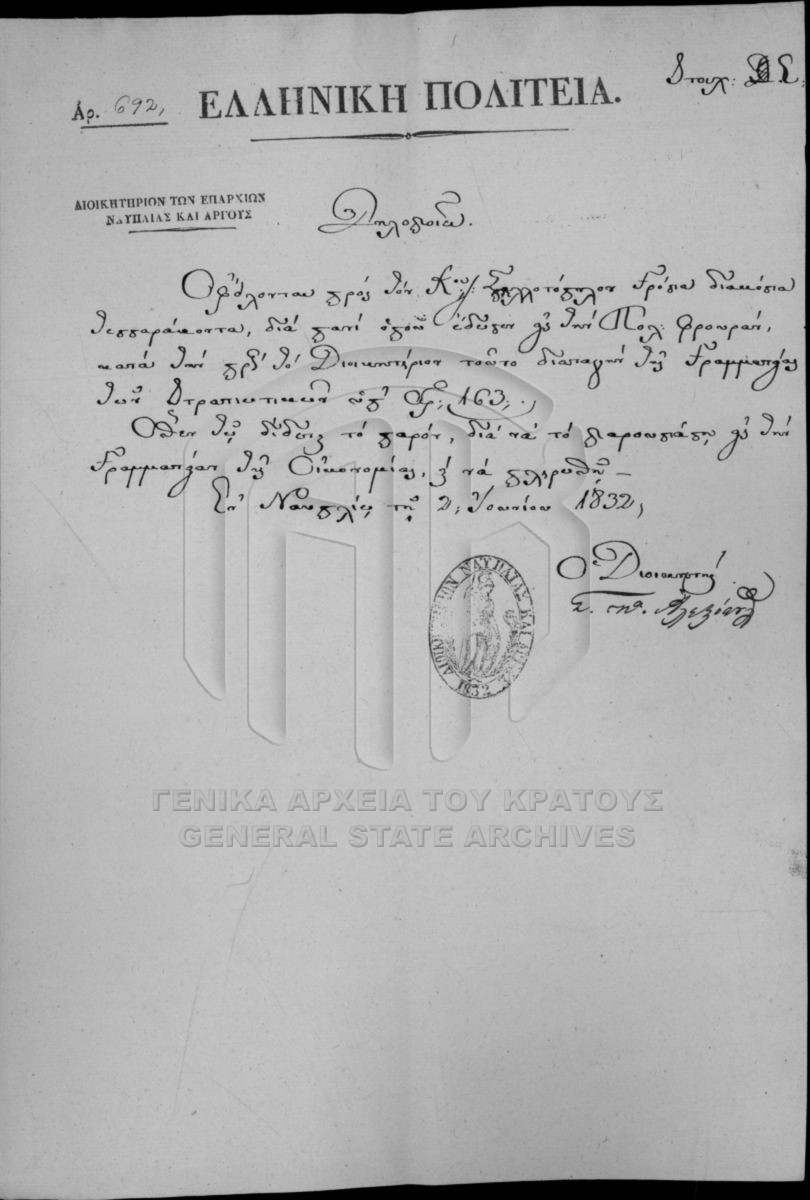 Ἀρ. 692,
ΕΛΛΗΝΙΚΗ ΠΟΛΙΤΕΙΑ.
Στοιχ:
ΔΙΟΙΚΗΤΗΡΙΟΝ ΤΩΝ ΕΠΑΡΧΙΩΝ
ΝΑΥΠΛΙΑΣ ΚΑΙ ΑΡΓΟΥΣ
Δηλοποιῶ.
Ὀφείλονται πρὸς τὸν Κον γρόσια διακόσια
τεσσαράκοντα, διὰ πανὶ ὁποῦ ἔδωσεν εἰς τὴν Πολ: φρουράν,
κατὰ τὴν πρὸς τὸ Διοικητήριον τοῦτο διαταγὴν τῆς Γραμματείας
τῶν Στρατιωτικῶν ὑπ' Ἀρ: 163:.
Ὅθεν τῷ δίδεται τὸ παρόν, διὰ νὰ τὸ παρουσιάσῃ εἰς τὴν
Γραμματείαν τῆς Οἰκονομίας, νὰ πληρωθῇ
Ἐν Ναυπλίῳ τῇ 2, Ἰουνίου 1832,
Ὁ Διοικητής
ΝΑΥΠΛΙΑΣ ΚΑΙ ΑΡΓΟΥΣ
1832
ΓΕΝΙΚΑ ΑΡΧΕΙΑ ΤΟΥ ΚΡΑΤΟΥΣ
GENERAL STATE ARCHIVES